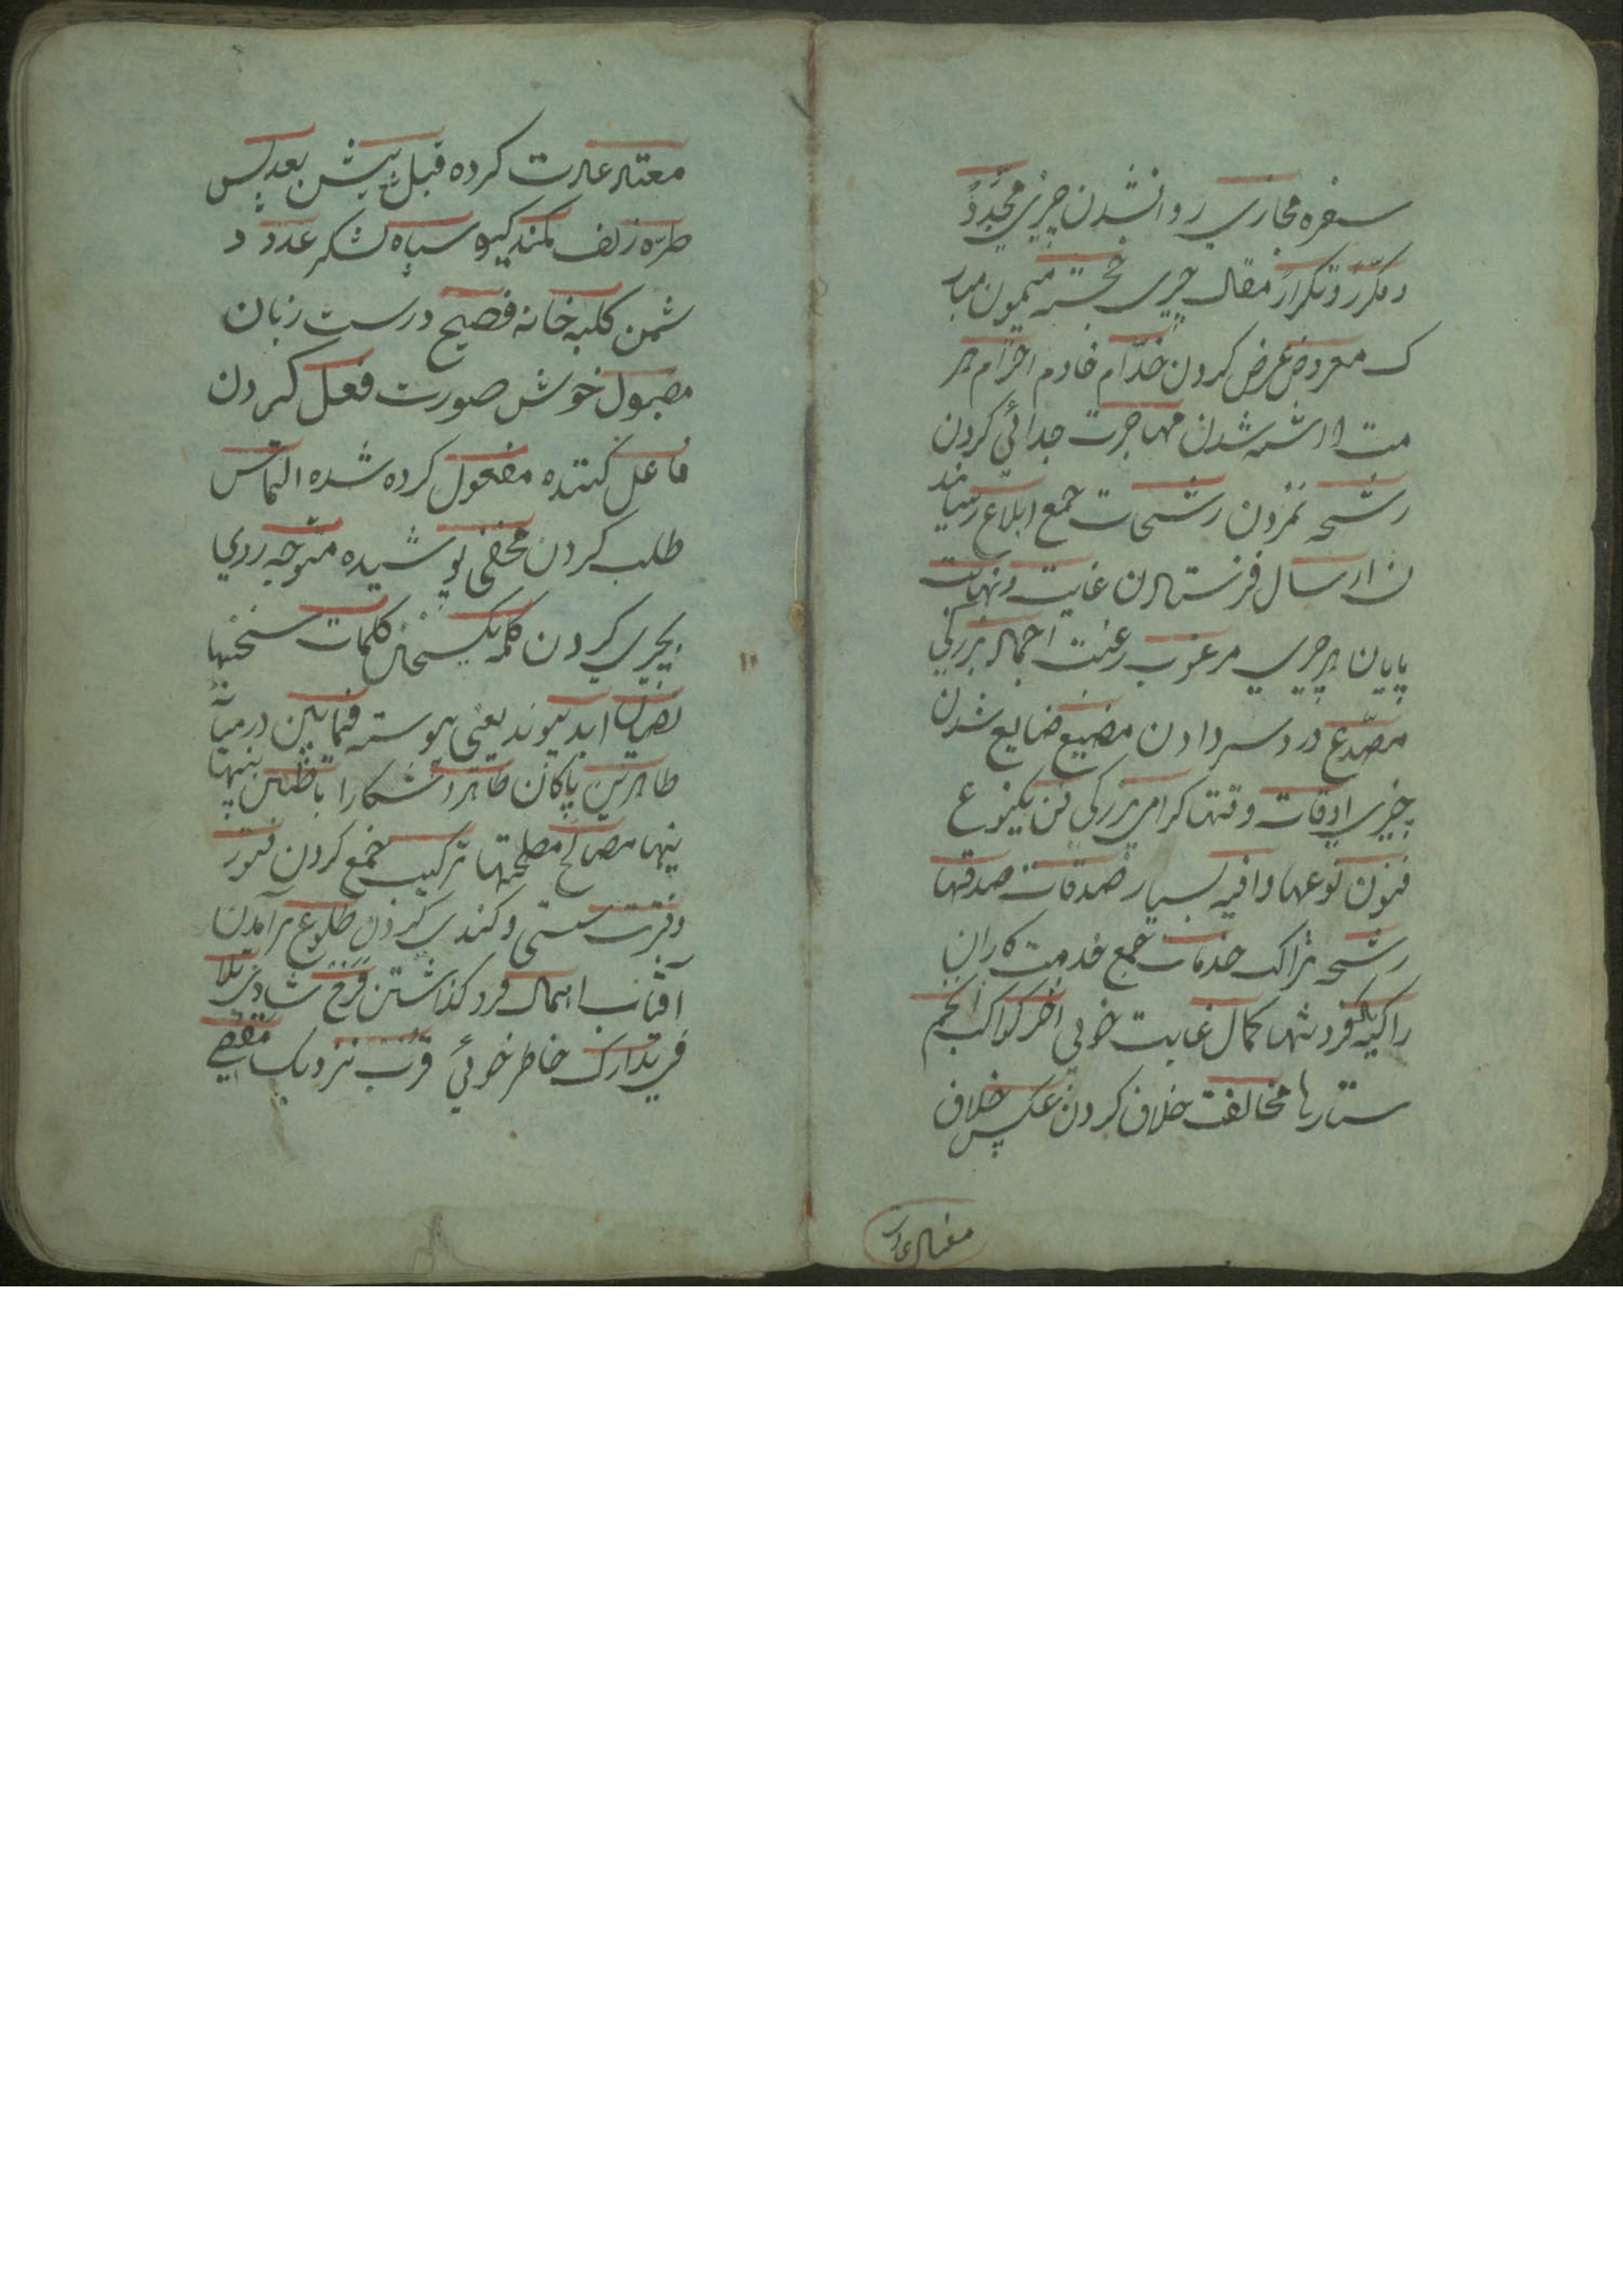 سفره مجازی روانشدن چیزی مجدد
و مکرر و تکرار مقال چیزی خجسته میمون مبار
ک معروض عرض کردن خدام خادم احترام حر
مت شدن مهاجرت جدائی کردن
رشحه نمزدن رشحات جمع ابلاغ رسانید
ن ارسال فرستادن غایت و نهایت
پایان هر چیزی مرغوب رغبت اجمال بزرگی
مصدع دردسر دادن مضیع ضایع شدن
چیزی اوقات وقتها کرامی بزرکی فن یکنوع
فنون نوعها وافیه بسیار صدقات صدقها
رشحه تراک خدمات جمع خدمت کاران
زاکیه کمال غایت خوبی اختر کواکب انجم
ستارها مخالفت خلاف کردن عکس خلاف
معتاد عادت
معتاد عادت کرده قبل پیش بعد پس
طره زلف کمند کیسو سپاه لشکر عدو د
شمن کلبه خانه فصیح درست زبان
مقبول خوش صورت فعل کردن
فاعل کننده مفعول کرده شده التماس
طلب کردن مخفی پوشیده متوجه روی
بچیزی کردن کلمه یکسخن کلمات سخنها
ابد پیوند یعنی پیوسته فیمابین درمیانه
طاهرین پاکان ظاهر آشکارا باطن پنها
پنها مصالح مصلحتها ترکیب جمع کردن فتور
و فترت سستی و کندی کردن طلوع برآمدن
آفتاب اهمال فرو کذاشتن فرح شادی تلا
فی تدارک خاطر خوئی قرب نزدیک